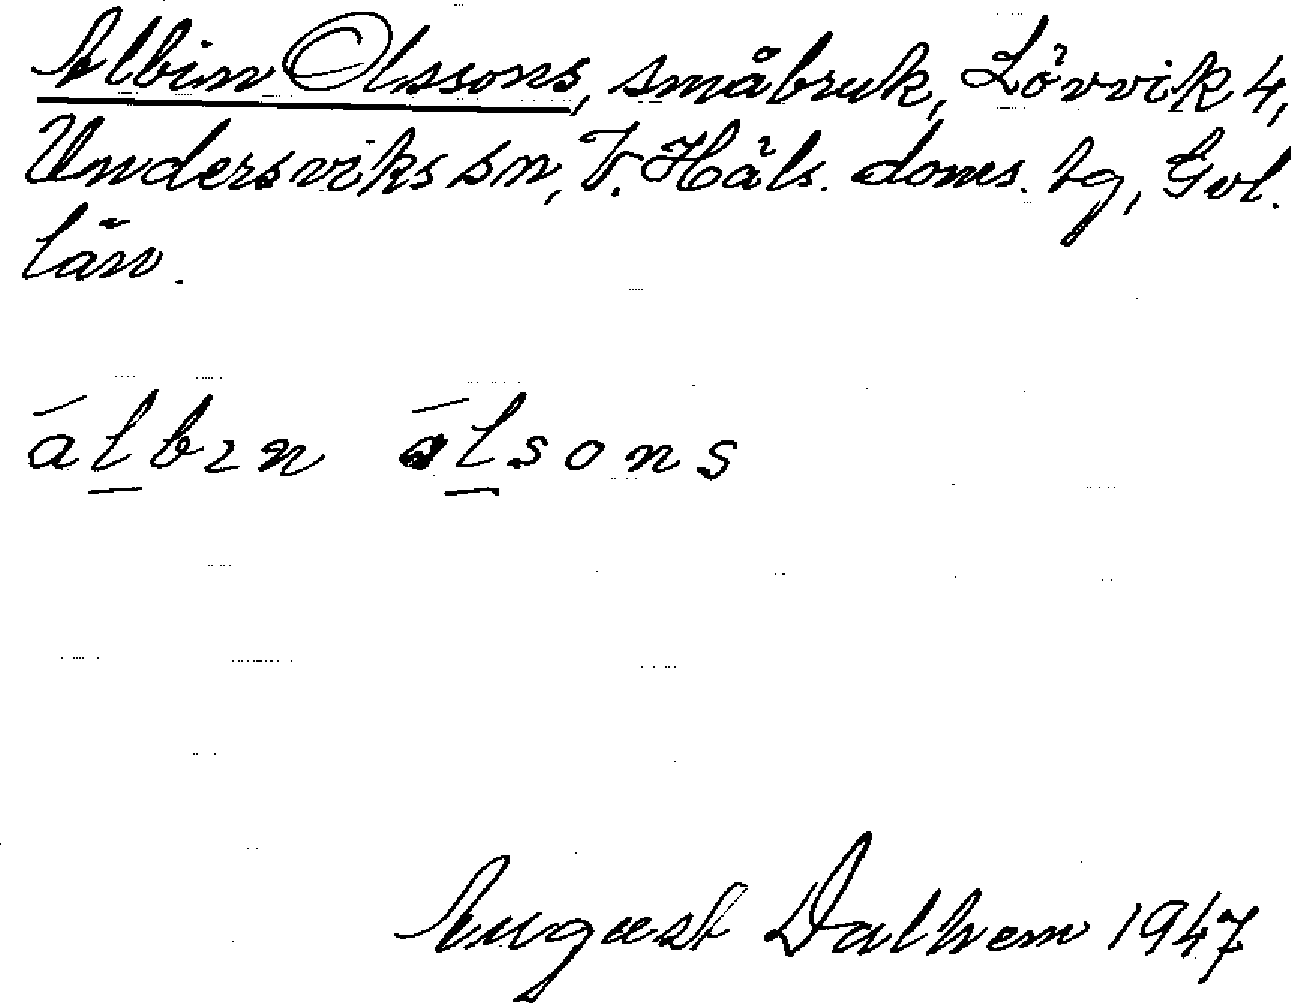 Albin Olssons, småbruk, Lövvik 4,
Undersviks sn, V. Häls. doms. tg, Gvl.
län.
álbın álsons
August Dalhem 1947